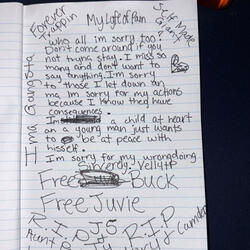 Forever
Trappin
My Life of Pain
Self Made
Who all im sorry too?
Don't come around if you
not tryna stay. I miss so
many and don't want to
say anything. I'm sorry
to those I let down an
ma im sorry for my actions
because I know they have
consequences.
a child at heart
an a young man just wants
to be at peace with
hisself.
Im sorry for my wrongdoing
Sincerly, Yelly
Ima Gangsta
Free Buck
Free Juvie
R.I.P J5
R.I.P
Aunt